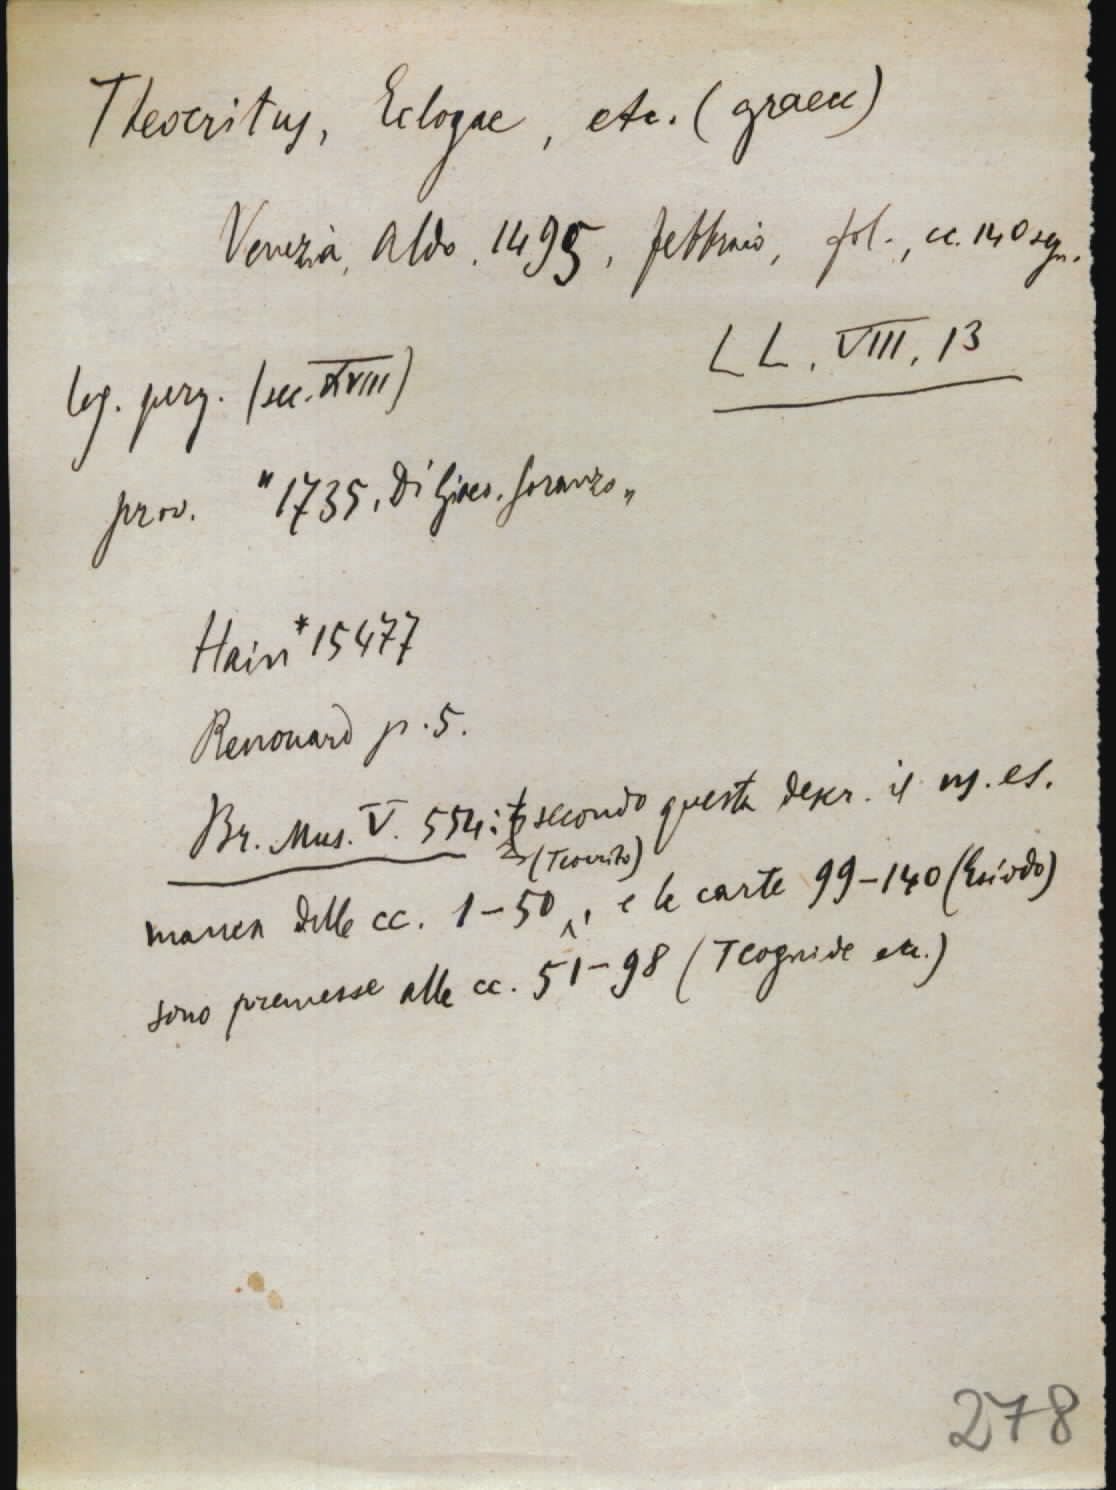 Theocritus, Eclogae, etc. (graece)
Venezia, Aldo, 1495, febbraio, fol., cc. 140 sgn.
LL. VIII, 13
leg. perg. (sec. XVIII)
prov. "1735, Di Giac. Soranzo"
Hain *15477
Renouard p. 5.
Br. Mus. V. 554: secondo questa descr. il ns. es.
manca delle cc. 1-50 (Teocrito), e le carte 99-140 (Esiodo)
sono premesse alle cc. 51-98 (Teognide etc.)
278